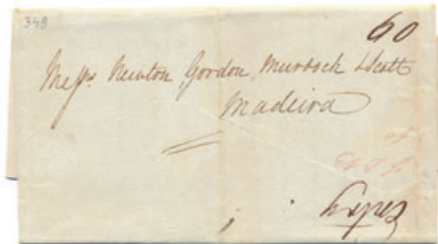 348
60
Messrs. Newton, Gordon, Murdoch & Scott
Madeira